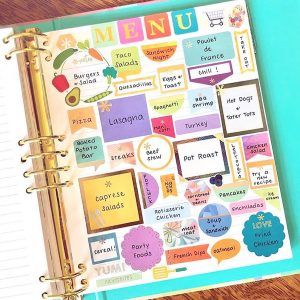 MENU
Taco
Salads
Sandwich
Night
Poulet
de
France
TAKE OUT
Burgers
or
Salad
Quesadillas
Eggs +
Toast
chili!
Spaghetti
BBQ
shrimp
Hot Dogs
+
Tater Tots
Pizza
Lasagna
Turkey
Baked
Potato
Bar
steaks
Beef
stew
Pot Roast
caprese
salads
Try a
new
recipe
Pancakes
Rotisserie
Chicken
Enchiladas
cereal!
Party
Foods
meat
loaf
Soup
+
Sandwich
LOVE
Fried
Chicken
YUM!
French Dips
oatmeal
FAVORITES